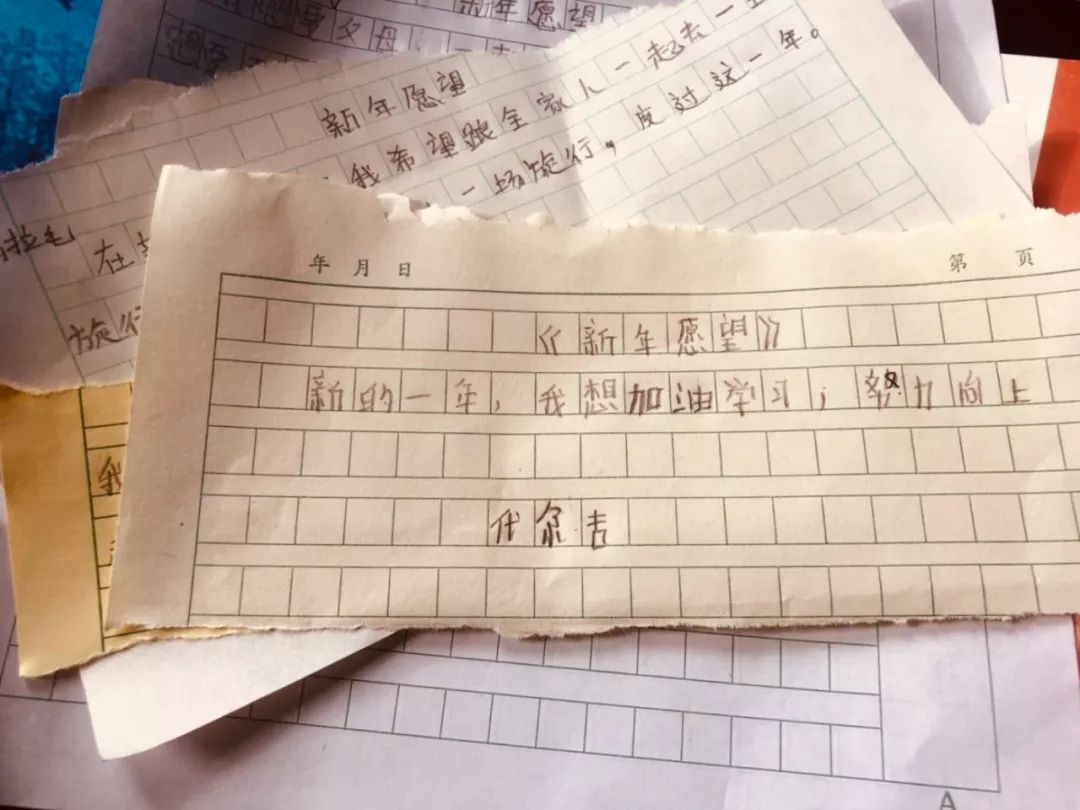 新年愿望
父母
新年愿望
我希望跟全家人一起去一
一场旅行，度过这一年。
拉毛
在
旅行
年 月 日 第 页
《新年愿望》
新的一年，我想加油学习；努力向上
代尔吉
我
A